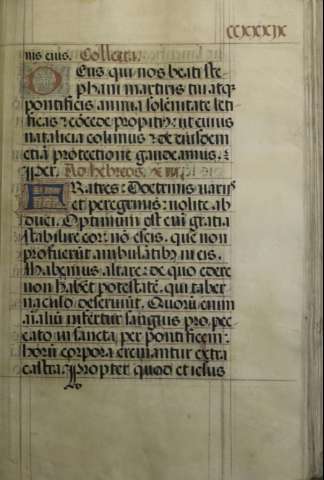 ccxxxix
nis eius. Collecta.
Deus qui nos beati ste
phani martiris tui atq
pontificis annua solenitate leti
ficas: cõcede propiti9: ut cuius
natalicia colimus: de eiusdem
etiã protectione gaudeamus.
Per. Ad hebreos.
Fratres: Doctrinis variis
et peregrinis: nolite ab
duci. Optimum est eni gratia
stabilire cor: nõ escis. que non
profuerũt ambulãtib9 in eis.
Habemus altare: de quo edere
non habẽt potestatẽ. qui taber
naculo deserviũt. Quorũ enim
aĩaliũ infertur sanguis pro pec
cato in sancta per pontificem:
horũ corpora cremantur extra
castra. Propter quod et iesus